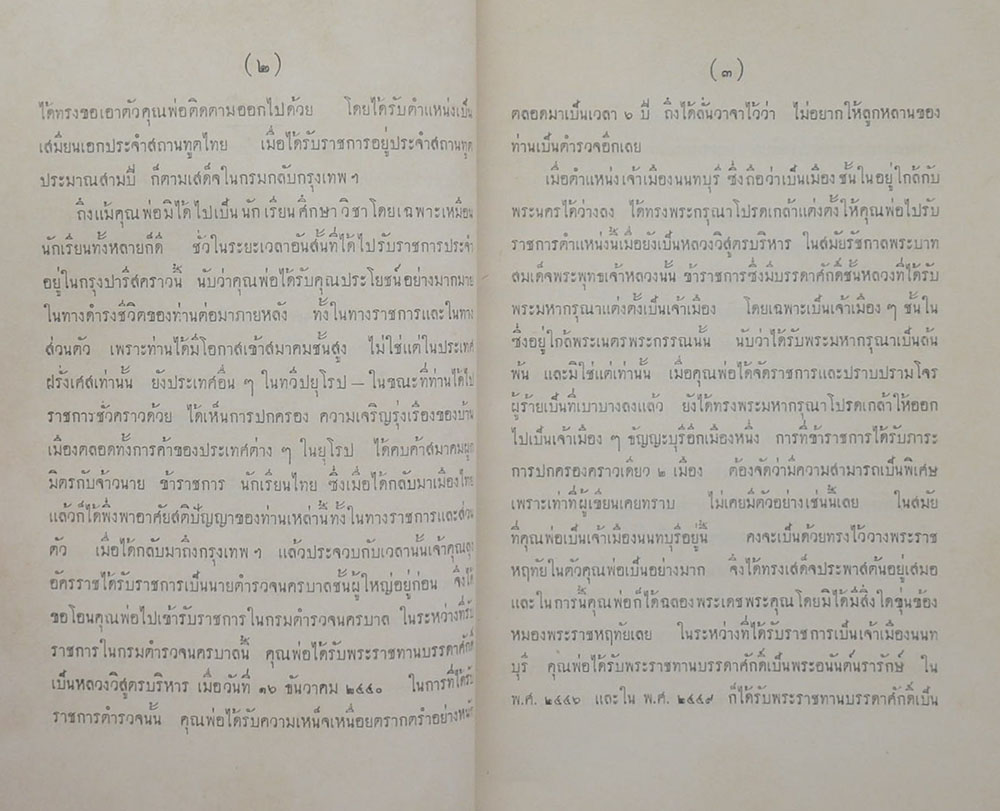 (๒)
ได้ทรงขอเอาตัวคุณพ่อติดตามออกไปด้วย โดยได้รับตำแหน่งเป็น
เสมียนเอกประจำสถานทูตไทย เมื่อได้รับราชการอยู่ประจำสถานทูต
ประมาณสามปี ก็ตามเสด็จในกรมกลับกรุงเทพ ฯ
ถึงแม้คุณพ่อมิได้ไปเป็นนักเรียนศึกษาวิชาโดยเฉพาะเหมือน
นักเรียนทั้งหลายก็ดี ชั่วในระยะเวลาอันสั้นที่ได้ไปรับราชการประจำ
อยู่ในกรุงปารีสคราวนี้ นับว่าคุณพ่อได้รับคุณประโยชน์อย่างมากมาย
ในทางดำรงชีวิตของท่านต่อมาภายหลัง ทั้งในทางราชการและในทาง
ส่วนตัว เพราะท่านได้มีโอกาสเข้าสมาคมชั้นสูง ไม่ใช่แต่ในประเทศ
ฝรั่งเศสเท่านั้น ยังประเทศอื่น ๆ ในทวีปยุโรป — ในขณะที่ท่านได้ไป
ราชการชั่วคราวด้วย ได้เห็นการปกครอง ความเจริญรุ่งเรืองของบ้าน
เมืองตลอดทั้งการค้าของประเทศต่าง ๆ ในยุโรป ได้คบค้าสมาคมผูก
มิตรกับจ้าวนาย ข้าราชการ นักเรียนไทย ซึ่งเมื่อได้กลับมาเมืองไทย
แล้วก็ได้พึ่งพาอาศัยสติปัญญาของท่านเหล่านี้ทั้งในทางราชการและส่วน
ตัว เมื่อได้กลับมาถึงกรุงเทพ ฯ แล้วประจวบกับเวลานั้นเจ้าคุณลุง
อัครราชได้รับราชการเป็นนายตำรวจนครบาลชั้นผู้ใหญ่อยู่ก่อน จึงได้
ขอโอนคุณพ่อไปเข้ารับราชการในกรมตำรวจนครบาล ในระหว่างที่รับ
ราชการในกรมตำรวจนครบาลนี้ คุณพ่อได้รับพระราชทานบรรดาศักดิ์
เป็นหลวงวิสูตรบริหาร เมื่อวันที่ ๑๖ ธันวาคม ๒๔๔๐ ในการที่ได้รับ
ราชการตำรวจนั้น คุณพ่อได้รับความเหน็จเหนื่อยตรากตรำอย่างหนัก
(๓)
ตลอดมาเป็นเวลา ๖ ปี ถึงได้ลั่นวาจาไว้ว่า ไม่อยากให้ลูกหลานของ
ท่านเป็นตำรวจอีกเลย
เมื่อตำแหน่งเจ้าเมืองนนทบุรี ซึ่งถือว่าเป็นเมืองชั้นในอยู่ใกล้กับ
พระนครได้ว่างลง ได้ทรงพระกรุณาโปรดเกล้าแต่งตั้งให้คุณพ่อไปรับ
ราชการตำแหน่งนี้เมื่อยังเป็นหลวงวิสูตรบริหาร ในสมัยรัชกาลพระบาท
สมเด็จพระพุทธเจ้าหลวงนั้น ข้าราชการซึ่งมีบรรดาศักดิ์ชั้นหลวงที่ได้รับ
พระมหากรุณาแต่งตั้งเป็นเจ้าเมือง โดยเฉพาะเป็นเจ้าเมือง ๆ ชั้นใน
ซึ่งอยู่ใกล้พระเนตรพระกรรณนั้น นับว่าได้รับพระมหากรุณาเป็นล้น
พ้น และมิใช่แต่เท่านั้น เมื่อคุณพ่อได้จัดราชการและปราบปรามโจร
ผู้ร้ายเป็นที่เบาบางลงแล้ว ยังได้ทรงพระมหากรุณาโปรดเกล้าให้ออก
ไปเป็นเจ้าเมือง ๆ ธัญญะบุรีอีกเมืองหนึ่ง การที่ข้าราชการได้รับภาระ
การปกครองคราวเดียว ๒ เมือง ต้องจัดว่ามีความสามารถเป็นพิเศษ
เพราะเท่าที่ผู้เขียนเคยทราบ ไม่เคยมีตัวอย่างเช่นนี้เลย ในสมัย
ที่คุณพ่อเป็นเจ้าเมืองนนทบุรีอยู่นี้ คงจะเป็นด้วยทรงไว้วางพระราช
หฤทัยในตัวคุณพ่อเป็นอย่างมาก จึงได้ทรงเสด็จประพาสต้นอยู่เสมอ
และในการนี้คุณพ่อก็ได้ฉลองพระเดชพระคุณโดยมิได้มีสิ่งใดขุ่นข้อง
หมองพระราชหฤทัยเลย ในระหว่างที่ได้รับราชการเป็นเจ้าเมืองนนท
บุรี คุณพ่อได้รับพระราชทานบรรดาศักดิ์เป็นพระอนันต์นรารักษ์ ใน
พ.ศ. ๒๔๔๖ และใน พ.ศ. ๒๔๔๙ ก็ได้รับพระราชทานบรรดาศักดิ์เป็น